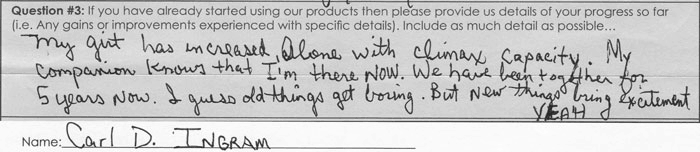 Question #3: If you have already started using our products then please provide us details of your progress so far
(i.e. Any gains or improvements experienced with specific details). Include as much detail as possible...
My girt has increased, Alone with climax capacity. My
companion knows that I'm there NOW. We have been together for
5 years now. I guess old things get boring. But New things bring excitement
YEAH
Name: Carl D. INGRAM